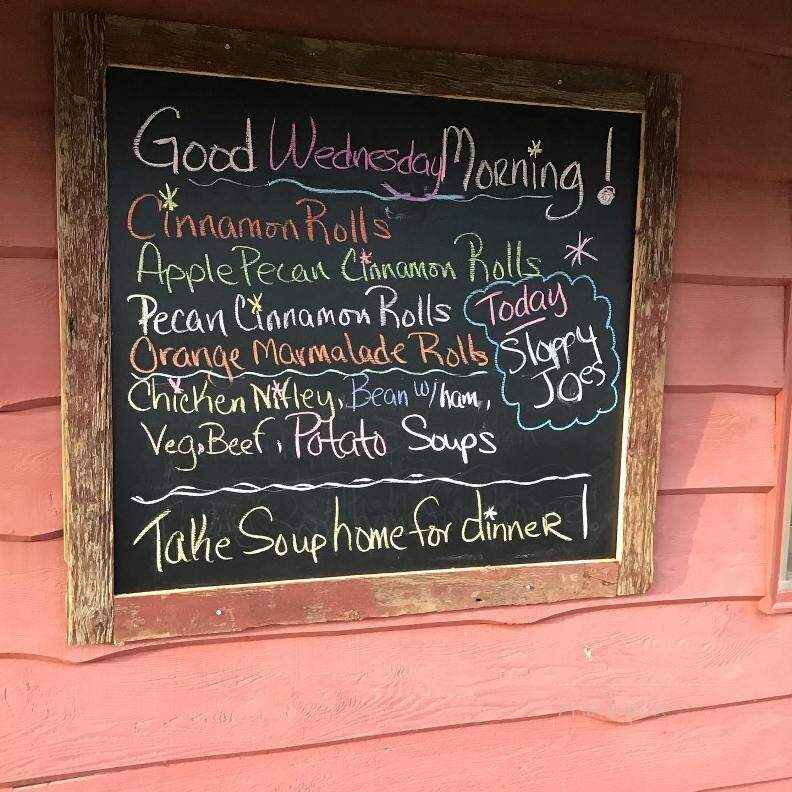 Good Wednesday Morning!
Cinnamon Rolls
Apple Pecan Cinnamon Rolls
Pecan Cinnamon Rolls
Orange Marmalade Rolls
Today
Sloppy
Joes
Chicken Nifley, Bean w/ham,
Veg. Beef, Potato Soups
Take Soup home for dinner!